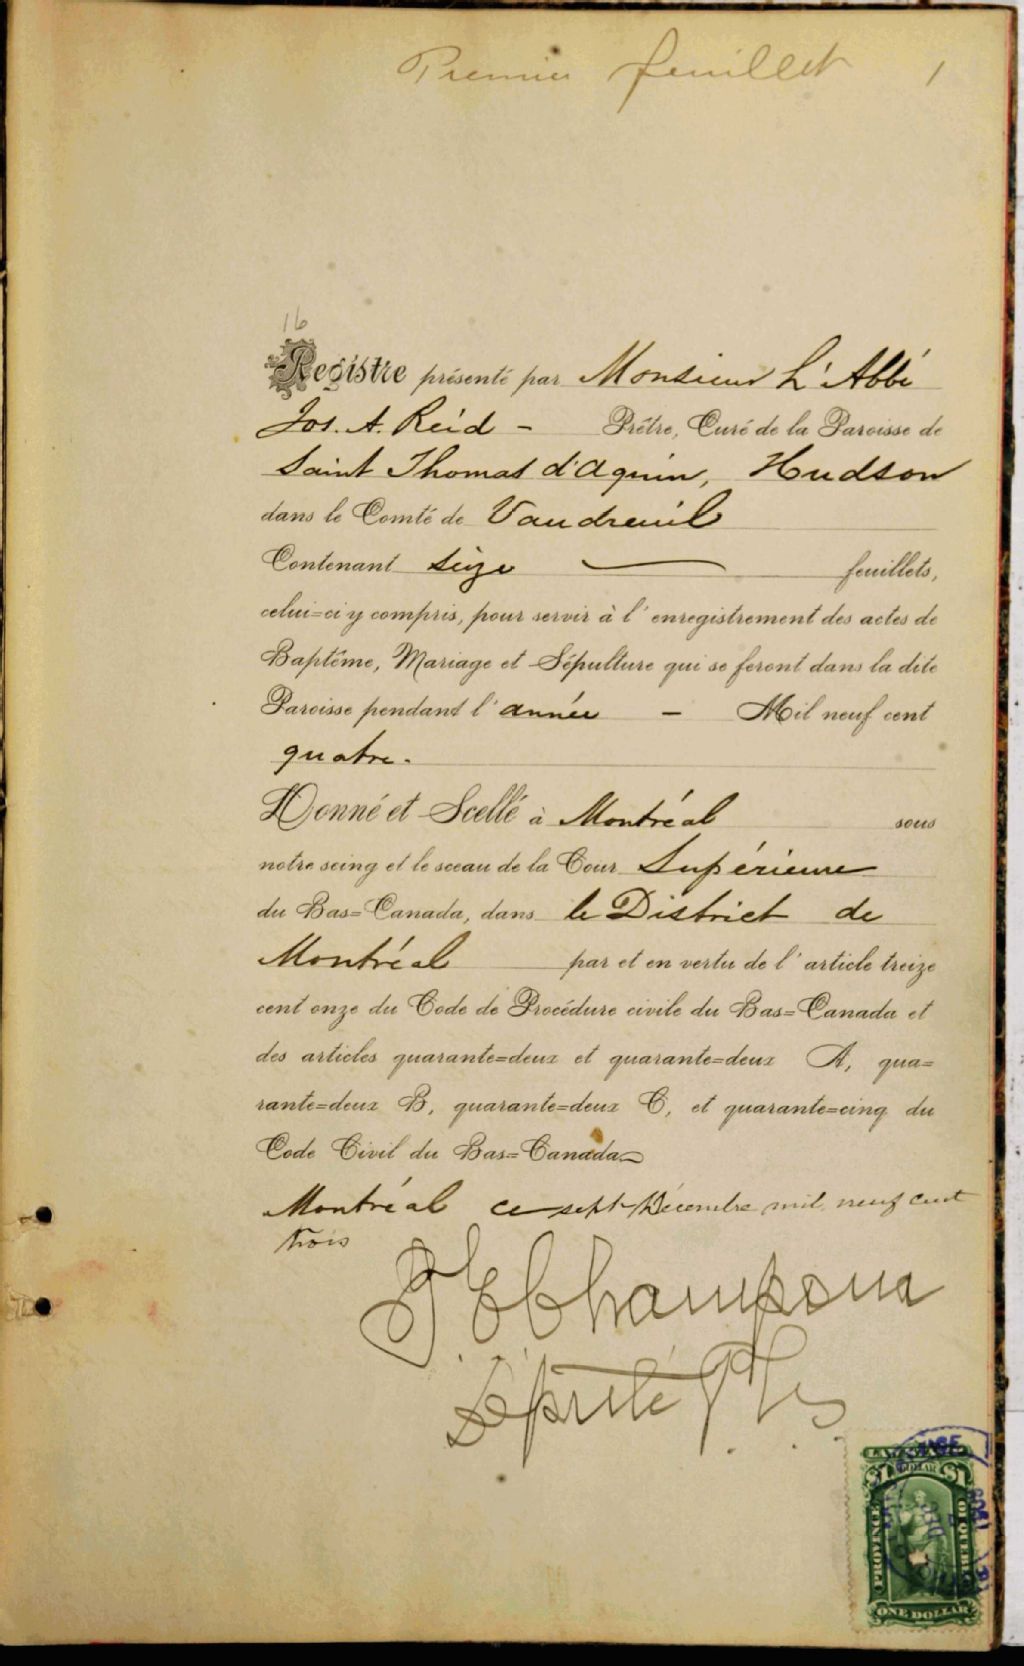 Premier feuillet 1
16
Registre présenté par Monsieur L'Abbé
Jos. A. Reid - Prêtre, Curé de la Paroisse de
Saint Thomas d'Aquin, Hudson
dans le Comté de Vaudreuil
Contenant seize feuillets,
celui=ci y compris, pour servir à l'enregistrement des actes de
Baptême, Mariage et Sépulture qui se feront dans la dite
Paroisse pendant l'année - Mil neuf cent
quatre.
Donné et Scellé à Montréal sous
notre seing et le sceau de la Cour Supérieure
du Bas=Canada, dans le District de
Montréal par et en vertu de l'article treize
cent onze du Code de Procédure civile du Bas=Canada et
des articles quarante=deux et quarante=deux A, qua=
rante=deux B, quarante=deux C, et quarante=cinq du
Code Civil du Bas=Canada
Montréal ce sept Décembre mil neuf cent
trois
Député
$1 DOLLAR $1
PROVINCE OF QUEBEC
ONE DOLLAR